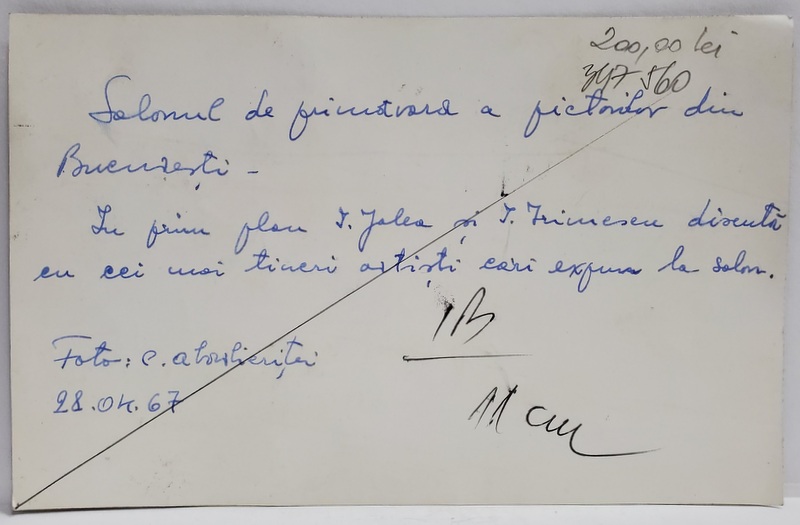 200,00 lei
347560
Salonul de primăvară a pictorilor din
București -
In prim plan I. Jalea și I. Irimescu discută
cu cei mai tineri artiști cari expun la salon.
Foto: C.
28.04.67
1B
11 cm